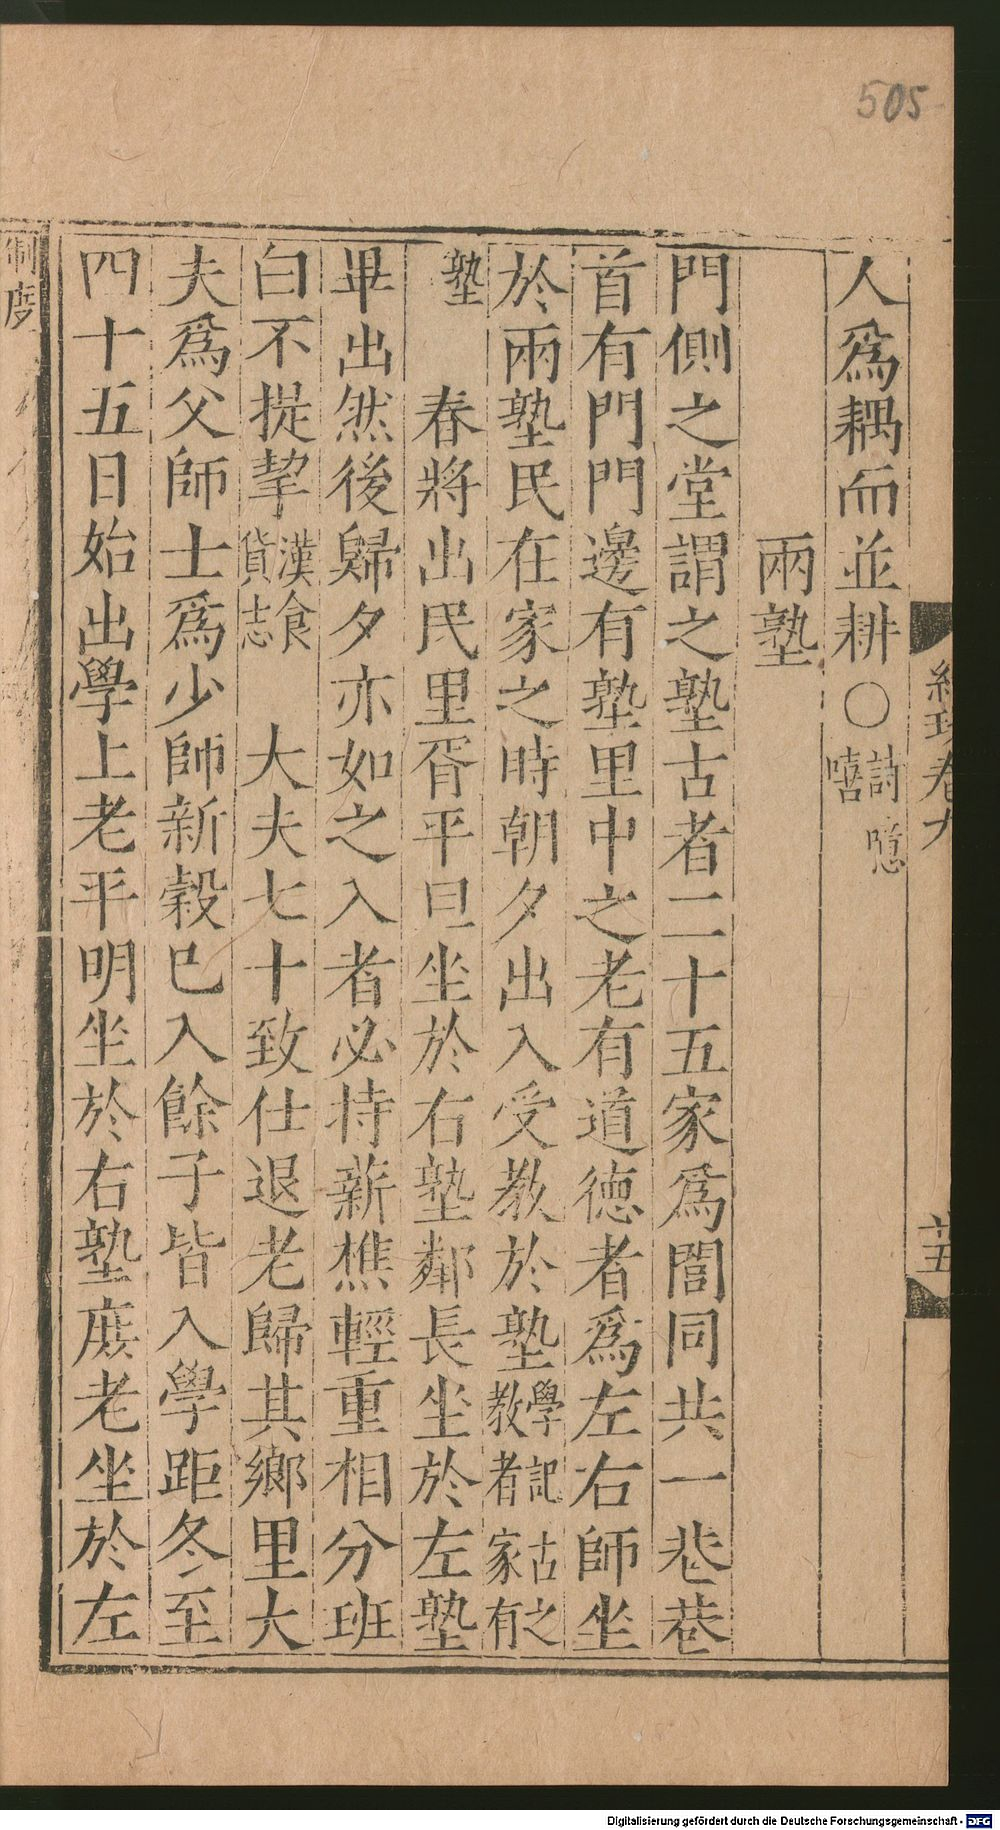 505
人爲耦而並耕〇詩噫嘻
兩塾
門側之堂謂之塾古者二十五家爲閭同共一巷巷
首有門門邊有塾里中之老有道德者爲左右師坐
於兩塾民在家之時朝夕出入受教於塾學記古之教者家有
塾　春將出民里胥平旦坐於右塾鄰長坐於左塾
畢出然後歸夕亦如之入者必持薪樵輕重相分班
白不提挈漢食貨志　大夫七十致仕退老歸其鄉里大
夫爲父師士爲少師新穀已入餘子皆入學距冬至
四十五日始出學上老平明坐於右塾庶老坐於左
卷九
廿五
制度
Digitalisierung gefördert durch die Deutsche Forschungsgemeinschaft - DFG